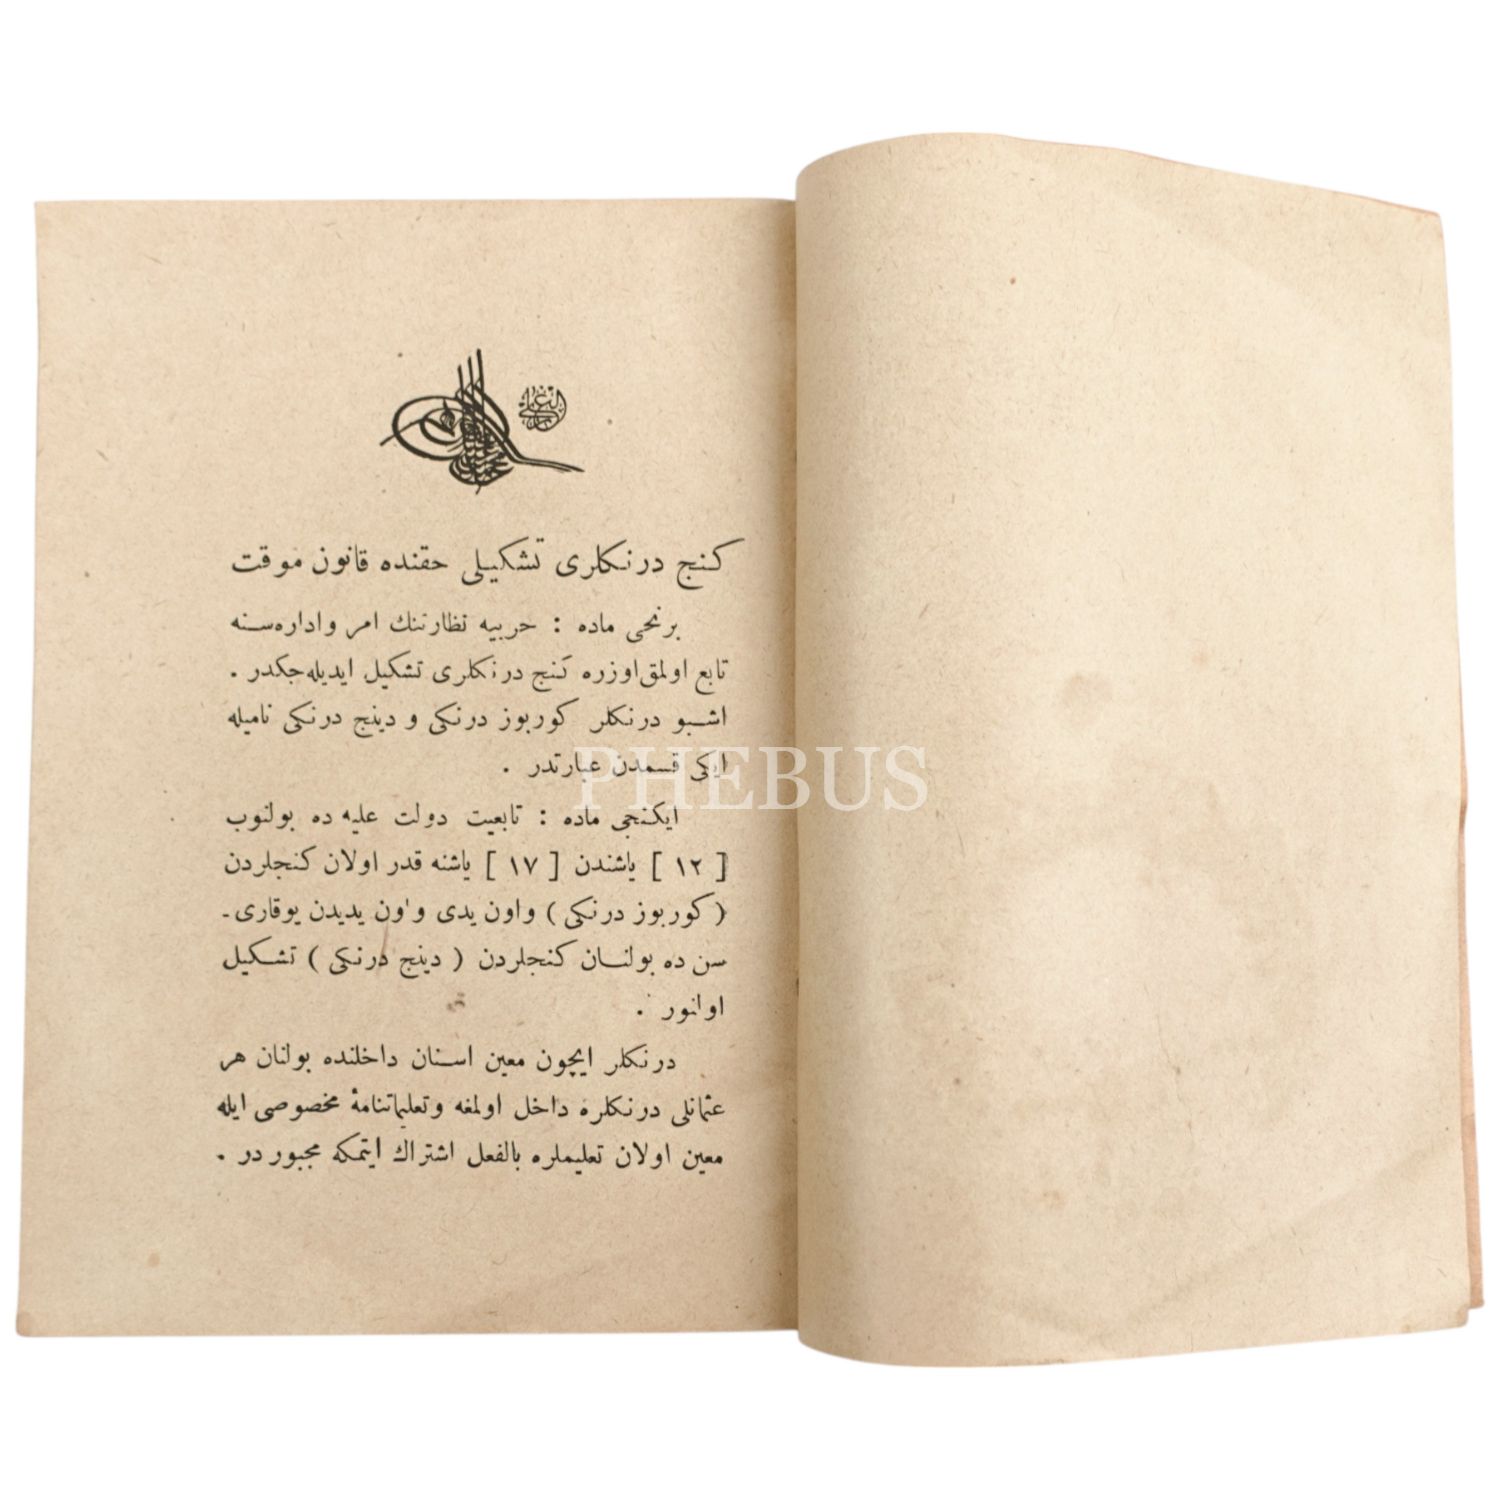 كنج درنكلری تشكیلی حقنده قانون موقت
برنجی ماده : حربیه نظارتنك امر واداره‌سنه
تابع اولمق اوزره كنج درنكلری تشكیل ایدیله‌جكدر .
اشبو درنكلر كوربوز درنكی و دینج درنكی نامیله
ایكی قسمدن عبارتدر .
PHEBUS
ایكنجی ماده : تابعیت دولت علیه ده بولنوب
[ ١٢ ] یاشندن [ ١٧ ] یاشنه قدر اولان كنجلردن
( كوربوز درنكی ) واون یدی و اون یدیدن یوقاری ـ
سن ده بولنان كنجلردن ( دینج درنكی ) تشكیل
اولنور .
درنكلر ایچون معین اسنان داخلنده بولنان هر
عثمانلی درنكلره داخل اولمغه وتعلیماتنامهٔ مخصوصی ایله
معین اولان تعلیملره بالفعل اشتراك ایتمكه مجبور در .